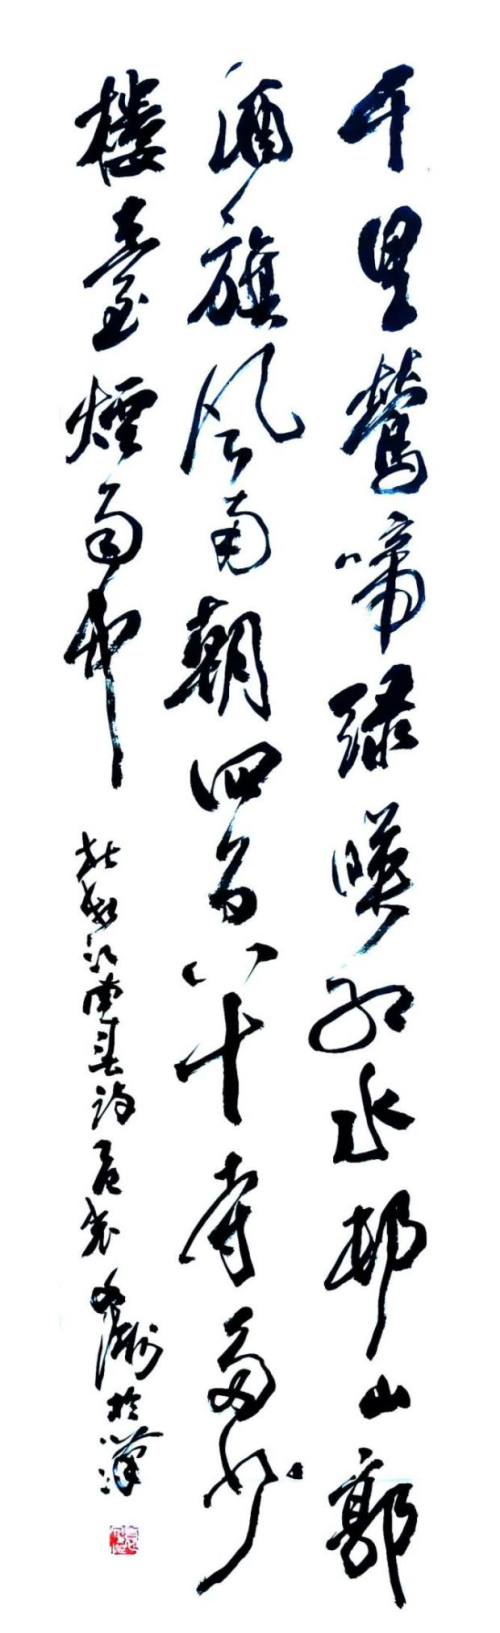 千里鶯啼緑暎红水邨山郭
酒旗风南朝四百八十寺多少
樓臺煙雨中 杜牧江南春诗 於漢